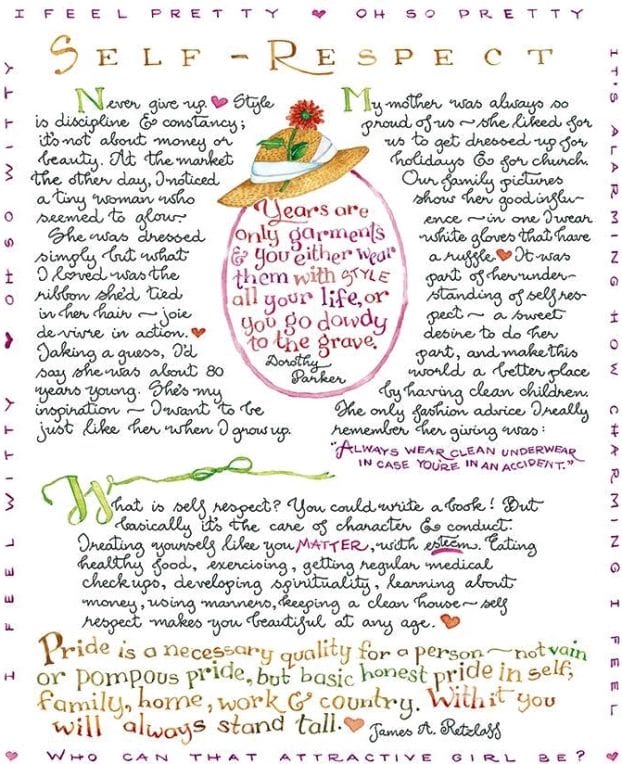 I FEEL PRETTY ♥ OH SO PRETTY
SELF-RESPECT
Never give up. ♥ Style
is discipline & constancy;
it's not about money or
beauty. At the market
the other day, I noticed
a tiny woman who
seemed to glow.
She was dressed
simply but what
I loved was the
ribbon she'd tied
in her hair ~ joie
de vivre in action. ♥
Taking a guess, I'd
say she was about 80
years young. She's my
inspiration ~ I want to be
just like her when I grow up.
Years are
only garments
& you either wear
them with STYLE
all your life, or
you go dowdy
to the grave.
Dorothy
Parker
My mother was always so
proud of us ~ she liked for
us to get dressed up for
holidays & for church.
Our family pictures
show her good influ-
ence ~ in one I wear
white gloves that have
a ruffle ♥ It was
part of her under-
standing of self res-
pect ~ a sweet
desire to do her
part, and make this
world a better place
by having clean children.
The only fashion advice I really
remember her giving was:
"ALWAYS WEAR CLEAN UNDERWEAR
IN CASE YOU'RE IN AN ACCIDENT."
What is self respect? You could write a book! But
basically it's the care of character & conduct.
Treating yourself like you MATTER, with esteem. Eating
healthy food, exercising, getting regular medical
checkups, developing spirituality, learning about
money, using manners, keeping a clean house ~ self
respect makes you beautiful at any age. ♥
Pride is a necessary quality for a person ~ not vain
or pompous pride, but basic honest pride in self,
family, home, work & country. With it you
will always stand tall. ♥ James A. Retzlaff
IT'S ALARMING HOW CHARMING I FEEL
♥ WHO CAN THAT ATTRACTIVE GIRL BE? ♥
I FEEL WITTY ♥ OH SO WITTY